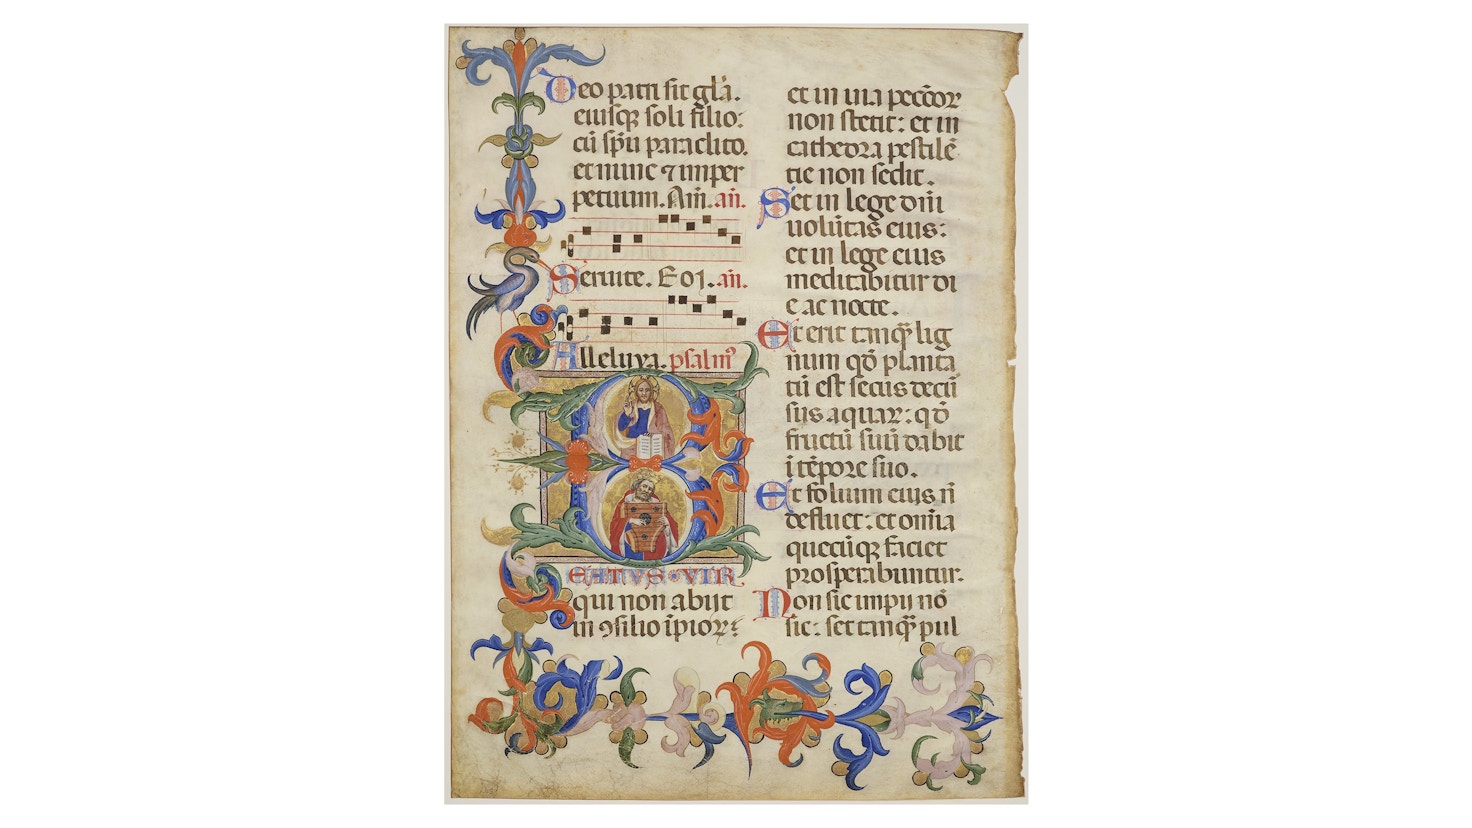 Deo patri sit gla̅.
eiusq̢ soli filio:
cu̅ sp̅u paraclito.
et nunc ⁊ imper
petuum. Am̅. an̅.
Seruite. E o ꝯ. an̅.
Alleluya. psalm⁹
BEATVS · VIR
qui non abijt
in ꝯsilio i̅pioꝝ:
et in uia pecc̅or
non stetit: et in
cathedra pestile̅
tie non sedit.
Set in lege dn̅i
uolu̅tas eius:
et in lege eius
meditabitur di
e ac nocte.
Et erit tanq̅ lig
num qd̅ planta
tu̅ est secus decu̅
sus aquar: qd̅
fructu̅ suu̅ dabit
i̅ te̅pore suo.
Et folium eius n̅
defluet: et om̅ia
quecu̅q̢ faciet
prosperabuntur.
Non sic impij no̅
sic: set tanq̅ pul